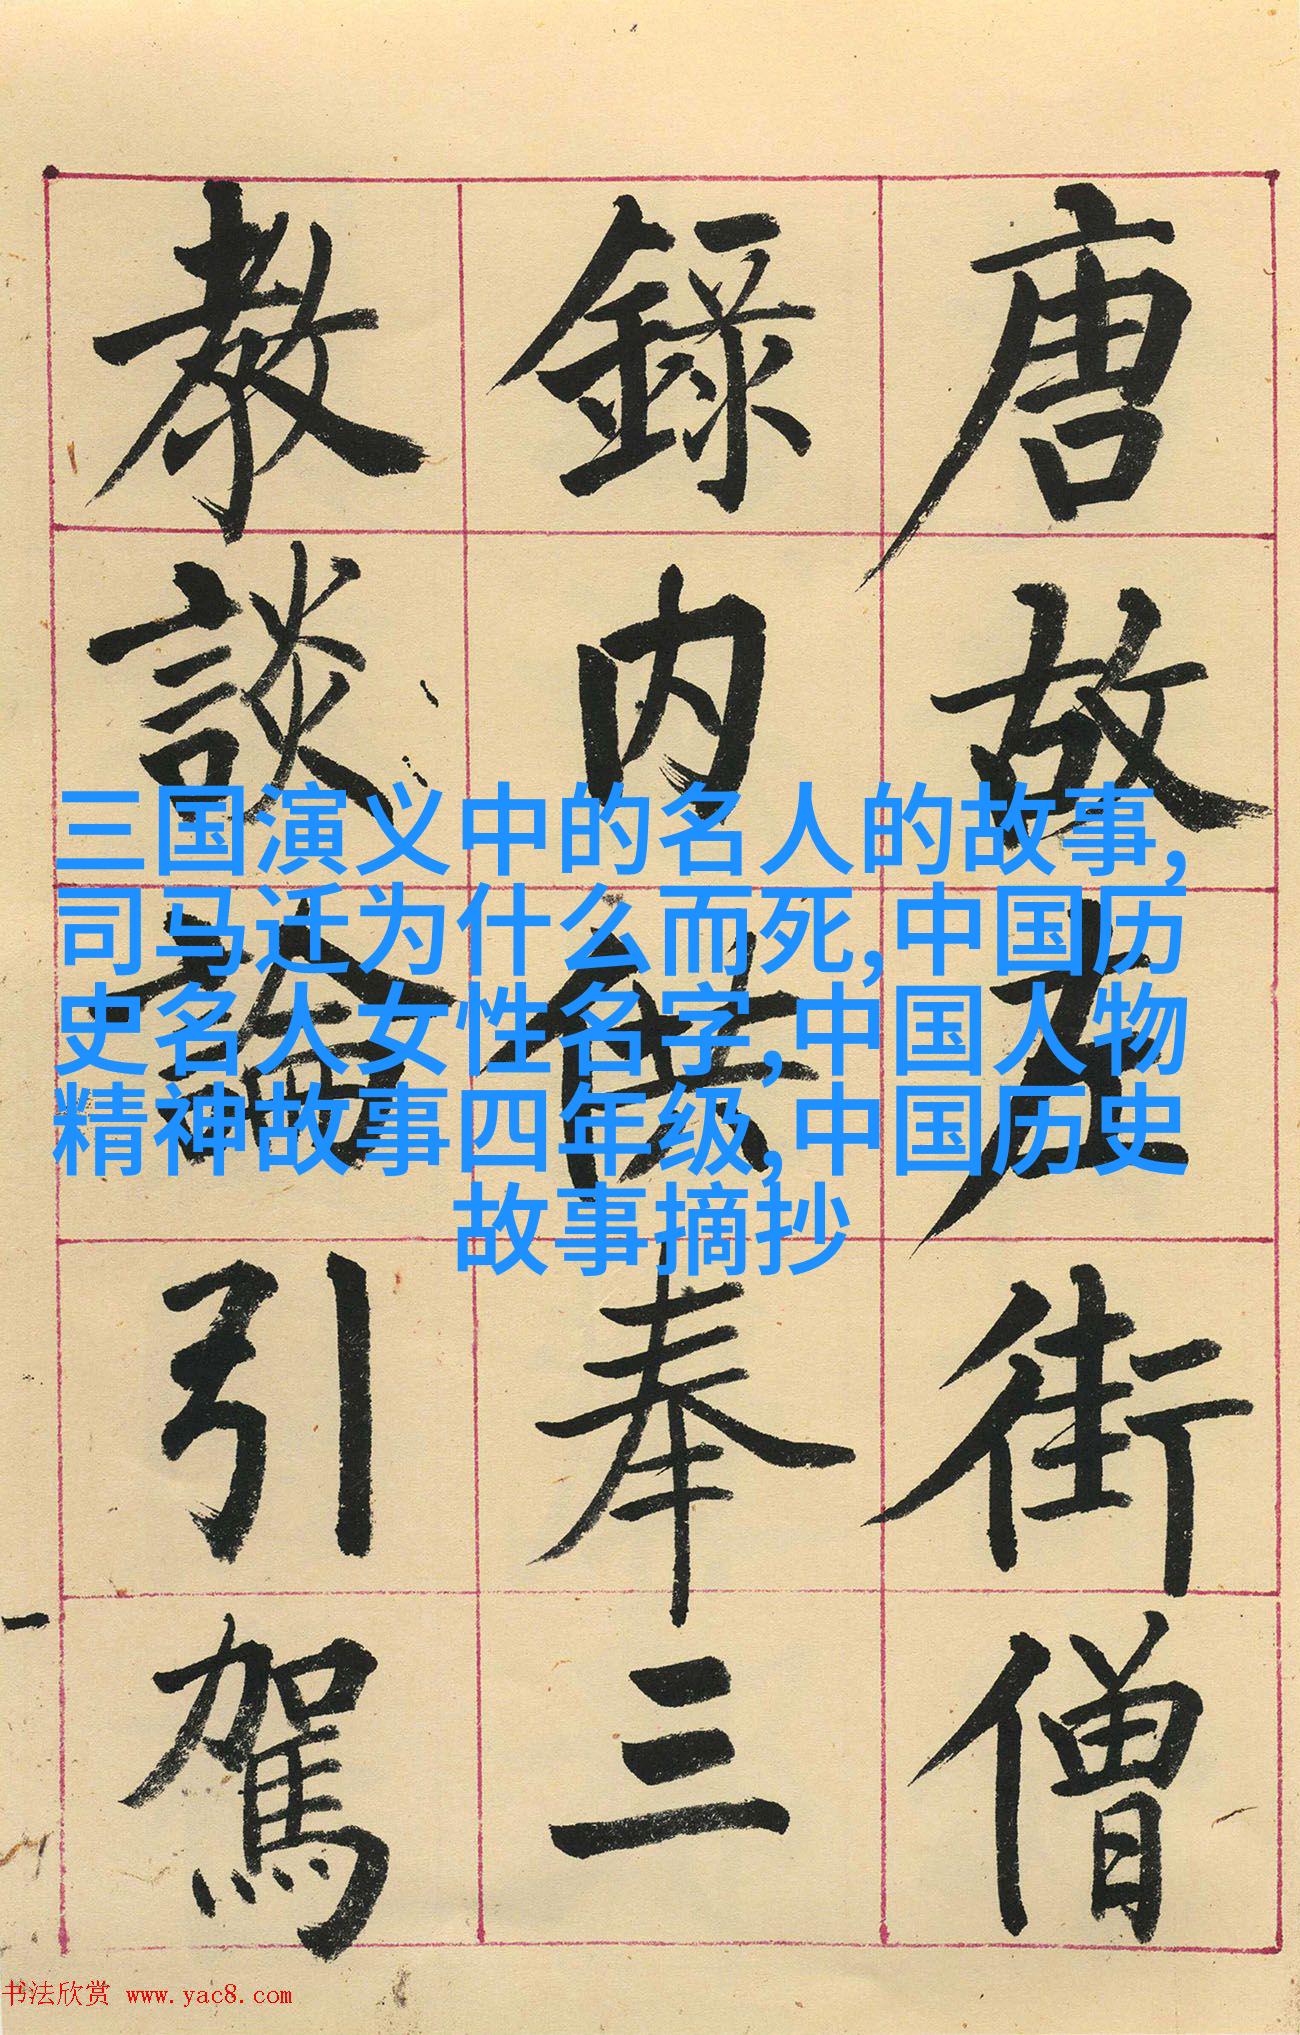 唐故左街僧
録内供奉三
教談論引駕
三国演义中的名人的故事,
司马迁为什么而死,中国历
史名人女性名字,中国人物
精神故事四年级,中国历史
故事摘抄
书法欣赏 www.yac8.com